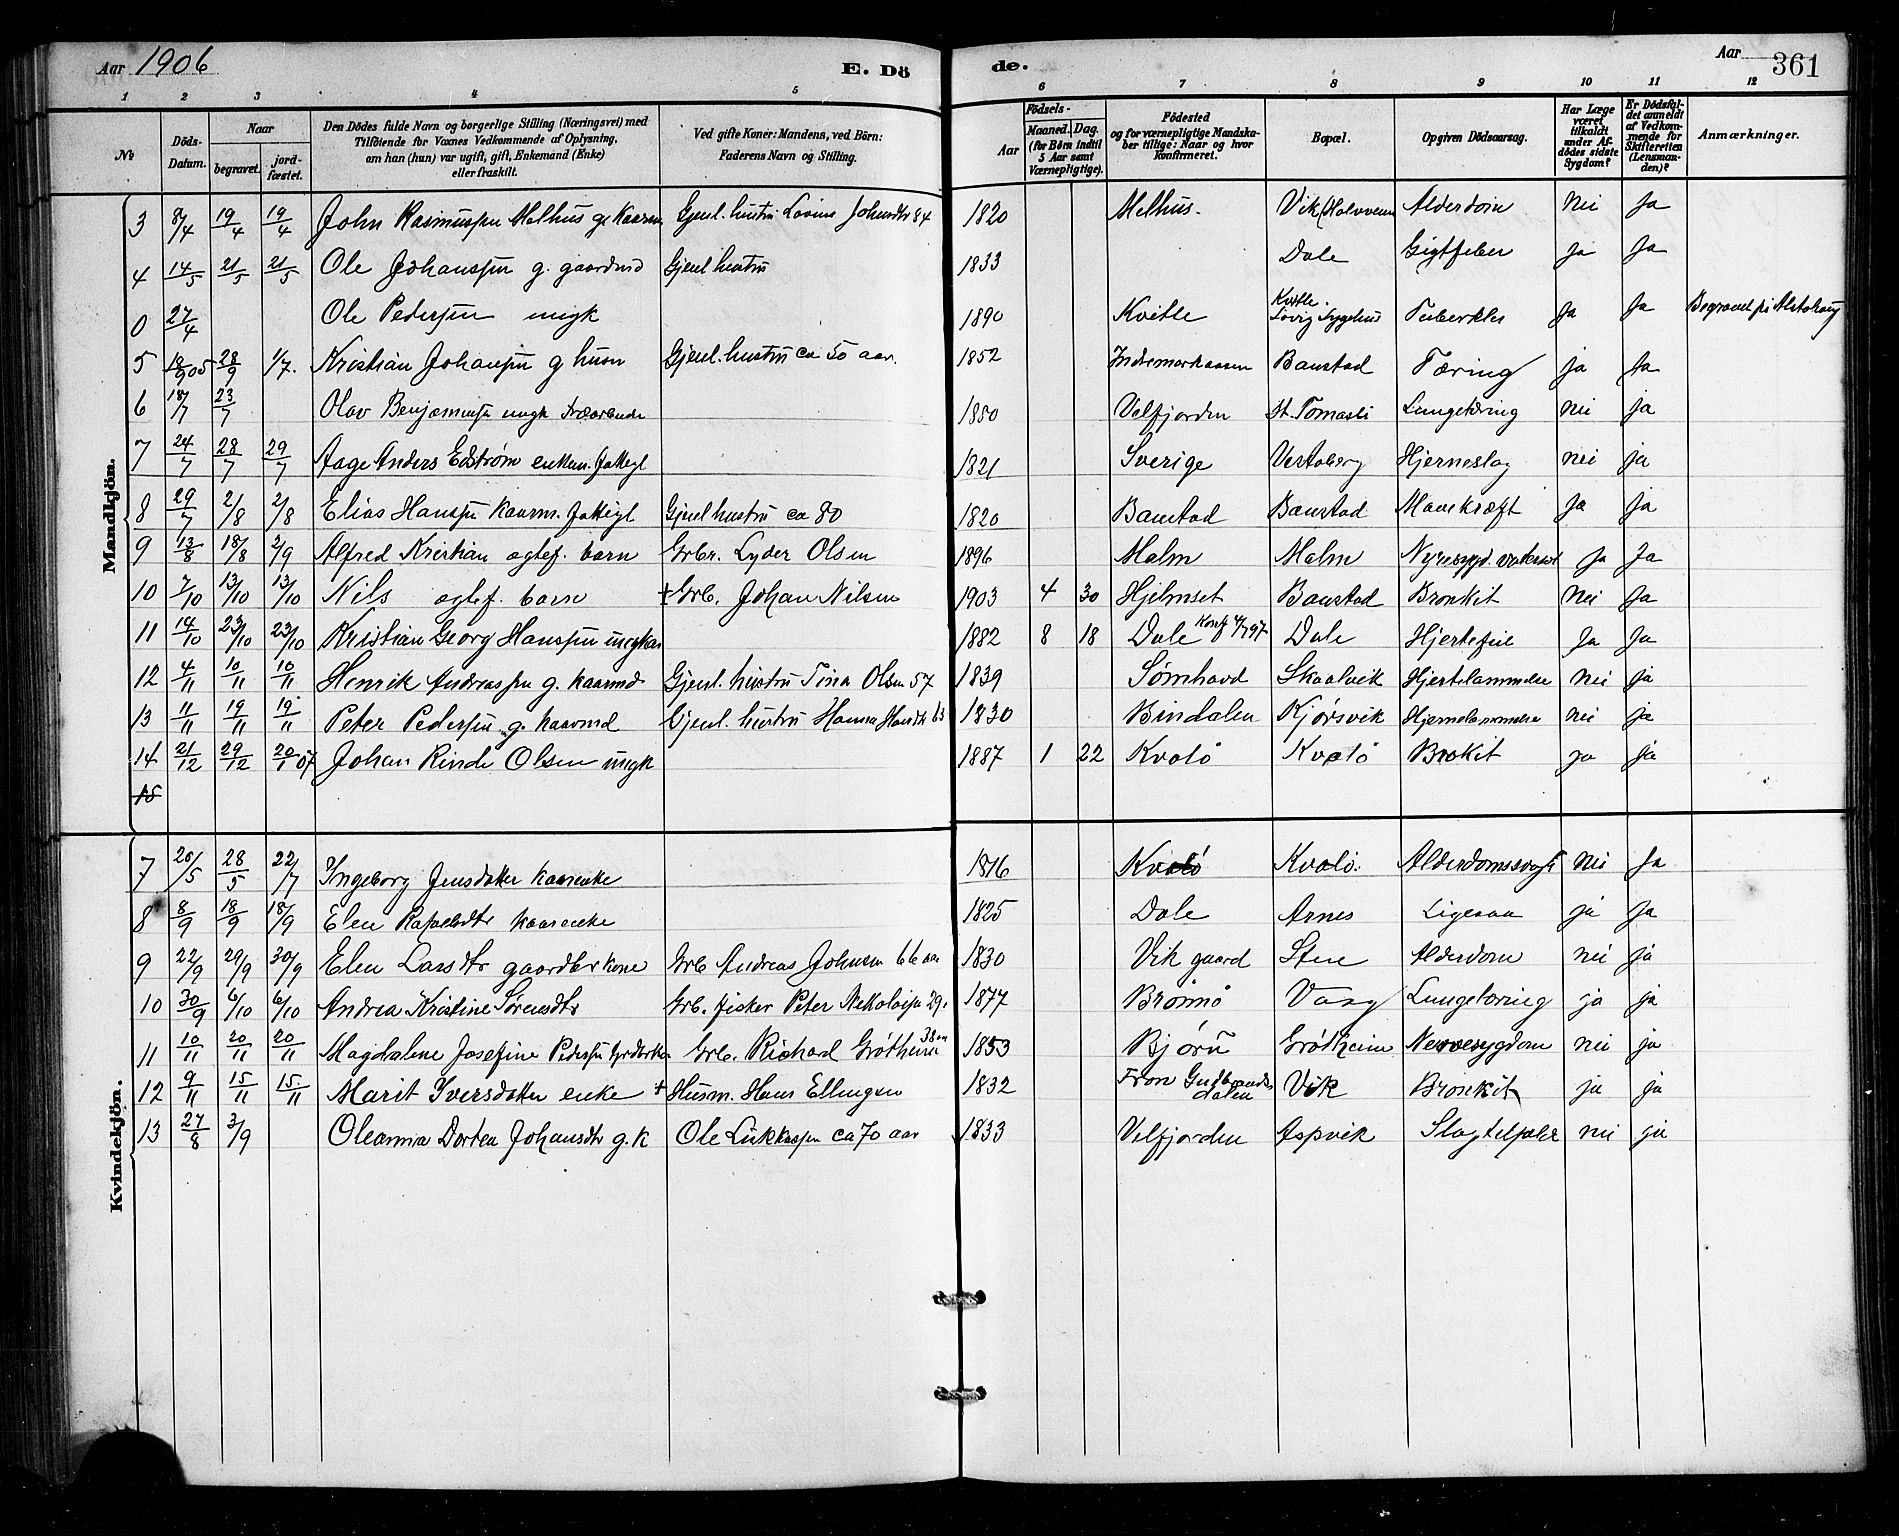 Aar 1906 E. Dö de. Aar 361
1 2 3 4 5 6 7 8 9 10 11 12
No. Döds-Datum. Naar begravet. jord-fæstet. Den Dödes fulde Navn og borgerlige Stilling (Næringsvei) med Tilföiende for Voxnes Vedkommende af Oplysning, om han (hun) var ugift, gift, Enkemand (Enke) eller fraskilt. Ved gifte Koner: Mandens, ved Börn: Faderens Navn og Stilling. Födsels- Aar Maaned. Dag. (for Börn indtil 5 Aar samt Værnepligtige). Födested og for værnepligtige Mandskaber tillige: Naar og hvor konfirmeret. Bopæl. Opgiven Dödsaarsag. Har Læge været tilkaldt under Afdödes sidste Sygdom? Er Dödsfaldet anmeldt af Vedkommende for Skifteretten (Lensmanden)? Anmærkninger.
Mandkjön.
3 8/4 19/4 19/4 John Rasmussen Melhus g. kaarm Gjenl. hustru Lovine Johnsdtr 84 1820 Melhus. Vik Alderdom nei Ja
4 14/5 21/5 21/5 Ole Johanssen g. gaardmd Gjenl hustru 1833 Dale Gigtfeber Ja Ja
0 27/4 Ole Pederssen ungk 1890 Kvitle Kvitle. Sygehus Tuberkler Ja Ja Begravet på Alstahaug
5 18/9 05 28/9 1/7. Kristian Johanssen g husm Gjenl. hustru ca 50 aar. 1852 Baustad Tæring ja Ja
6 18/7 23/7 Olav Benjaminssen ungk 1880 Velfjorden St. Tomasli Lungetæring nei ja
7 24/7 28/7 29/7 Aage Anders Edstrøm enkem. fattigl 1821 Sverige Hjerneslag nei ja
8 29/7 2/8 2/8 Elias Hanssen kaarm. fattigl Gjenl hustru ca 80 1820 Baustad Baustad Mavekræft Ja ja
9 13/8 18/8 2/9 Alfred Kristian agtef. barn Grbr. Lyder Olsen 1896 Malm Malm Nyresygd. vattersot Ja Ja
10 7/10 13/10 13/10 Nils agtef. barn + Grb. Johan Nilsen 1903 4 30 Hjelmset Baustad Bronkit nei Ja
11 14/10 23/10 23/10 Kristian Georg Hanssen ungkar 1882 8 18 Dale Konf 4/7 97 Dale Hjertefeil Ja Ja
12 4/11 10/11 10/11 Henrik Andreassen g. kaarmd. Gjenl. hustru Tina Olsen 57 1839 Sømhovd Skaalvik Hjertelammelse nei ja
13 11/11 19/11 19/11 Peter Pederssen g. kaarmd Gjenl. hustru Hanna Hansdtr 63 1830 Bindalen Kjørsvik Hjernelammelse nei ja
14 21/12 29/12 20/1 07 Johan Rinde Olsen ungk 1887 1 22 Kvalø Kvalø Brokit ja ja
15
Kvindekjön.
7 20/5 28/5 22/7 Ingeborg Jensdatter kaarenke 1816 Kvalø Kvalø. nei Ja
8 8/9 18/9 18/9 Elen kaarenke 1825 Dale Arnes Ligesaa ja Ja
9 22/9 29/9 30/9 Elen Larsdtr gaardbrkone Grb Andreas Johnsen 66 aar 1830 Vik gaard Stene Alderdom nei ja
10 30/9 6/10 6/10 Andrea Kristine Sørensdtr Grb. fisker Peter Nekolaisen 29. 1877 Brønnø Vaag Lungetæring ja ja
11 10/11 20/11 20/11 Magdalene Josefine Pederssen Grb. Richard Grøtheim 38 aar 1853 Bjørn Grøtheim Nervesygdom nei ja
12 9/11 15/11 15/11 Marit Iversdatter enke + Husm. Hans Ellingsen 1832 Fron Gudbrandsdalen Vik Bronkit ja ja
13 27/8 3/9 Oleanna Dortea Johansdtr g. k Ole Lukkassen ca 70 aar 1833 Velfjorden Aspvik nei ja